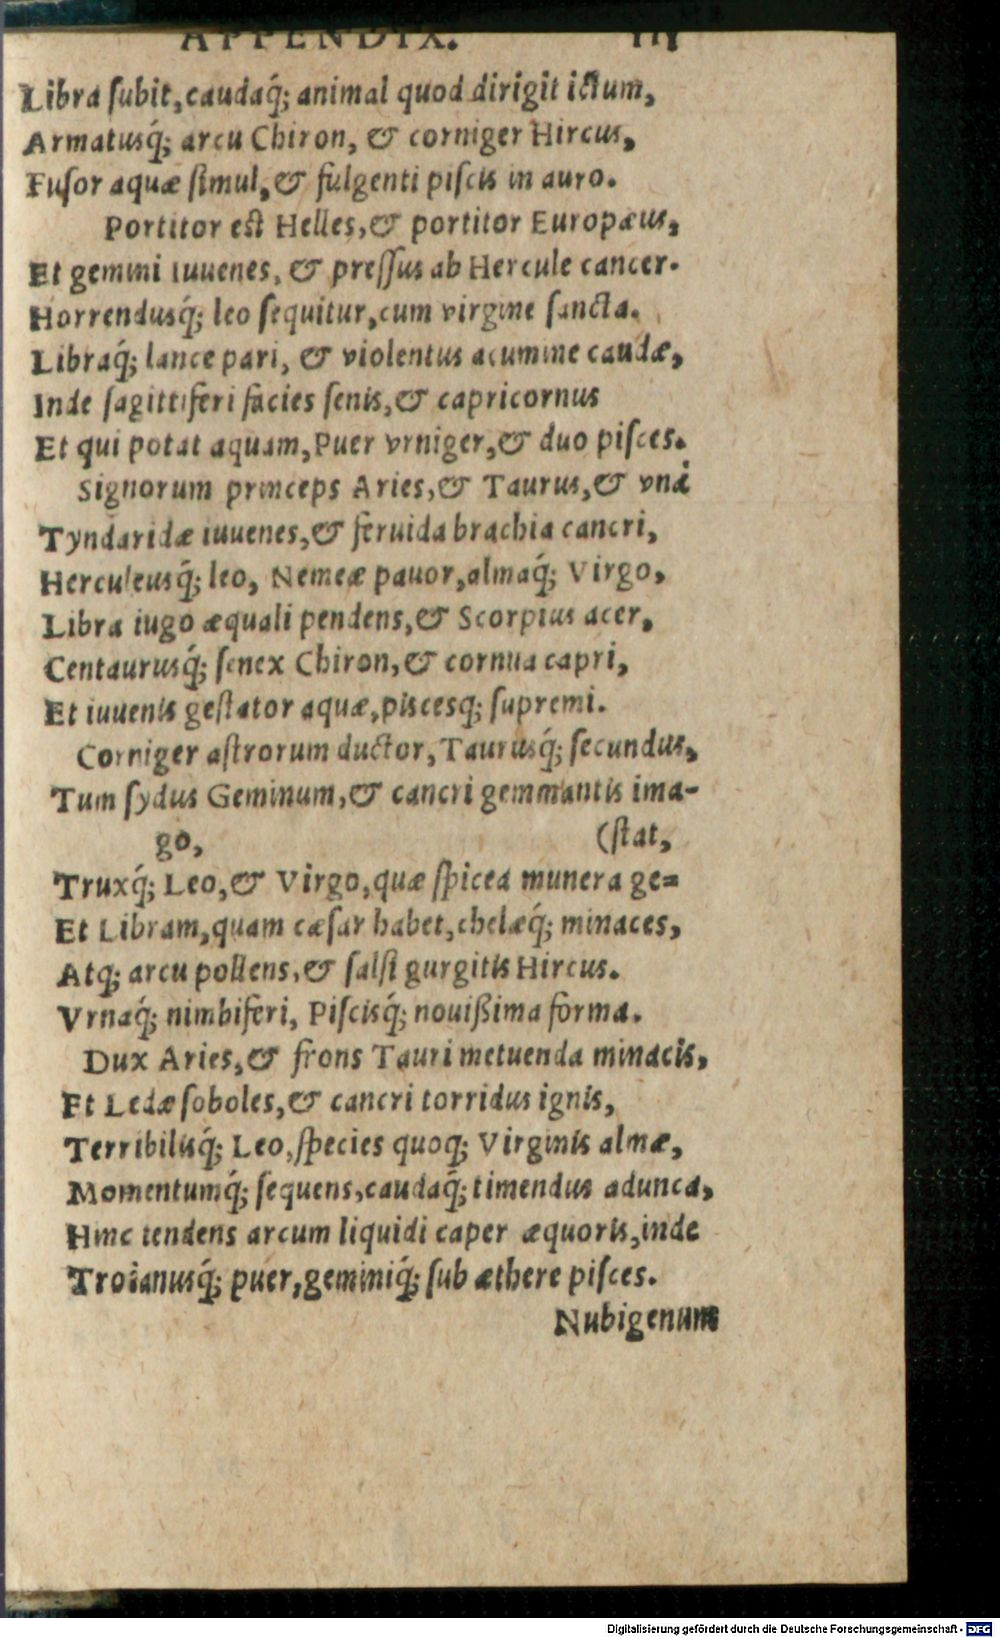 APPENDIX. 111
Libra ſubit, caudaq́; animal quod dirigit ictum,
Armatusq́; arcu Chiron, & corniger Hircus,
Fuſor aquæ ſimul, & fulgenti piſcis in auro.
Portitor est Helles, & portitor Europæus,
Et gemini iuuenes, & preſſus ab Hercule cancer.
Horrendusq́; leo ſequitur, cum virgine ſancta.
Libraq́; lance pari, & violentus acumine caudæ,
Inde ſagittiferi facies ſenis, & capricornus
Et qui potat aquam, Puer vrniger, & duo piſces.
Signorum princeps Aries, & Taurus, & vnà
Tyndaridæ iuuenes, & feruida brachia cancri,
Herculeusq́; leo, Nemeæ pauor, almaq́; Virgo,
Libra iugo æquali pendens, & Scorpius acer,
Centaurusq́; ſenex Chiron, & cornua capri,
Et iuuenis geſtator aquæ, piscesq; ſupremi.
Corniger aſtrorum ductor, Taurusq́; ſecundus,
Tum ſydus Geminum, & cancri gemmantis ima-
go, (ſtat,
Truxq́; Leo, & Virgo, quæ ſpicea munera ge=
Et Libram, quam cæſar habet, chelæq́; minaces,
Atq; arcu pollens, & ſalſi gurgitis Hircus.
Vrnaq́; nimbiferi, Piſcisq́; nouißima forma.
Dux Aries, & frons Tauri metuenda minacis,
Et Ledæ ſoboles, & cancri torridus ignis,
Terribilisq́; Leo, ſpecies quoq; Virginis almæ,
Momentumq́; ſequens, caudaq́; timendus adunca,
Hinc tendens arcum liquidi caper æquoris, inde
Troianusq́; puer, geminiq́; ſub æthere piſces.
Nubigenum
Digitalisierung gefördert durch die Deutsche Forschungsgemeinschaft - DFG